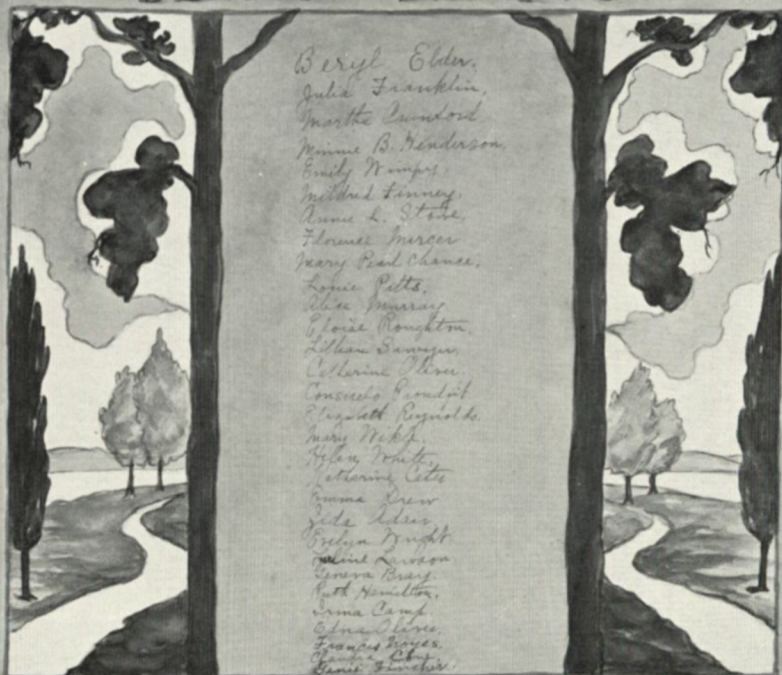 Beryl Elder.
Julia Franklin.
Martha Crawford
Minnie B. Henderson.
Emily Wimpy.
Mildred Finney.
Annie L. Stowe.
Florence Mercer
Mary Pearl Chance.
Louie Pitts.
Alice Murray
Eloise Roughton.
Lillian Sawyer.
Catherine Oliver.
Consuelo
Elizabeth Reynolds.
Mary
Helen White.
Katherine Cates
Emma Drew
Zida Adair
Evelyn Wright.
Lawson
Geneva Bray.
Ruth Hamilton.
Irma Camp.
Edna Oliver.
Frances Noyes.
Claudia
Fincher.